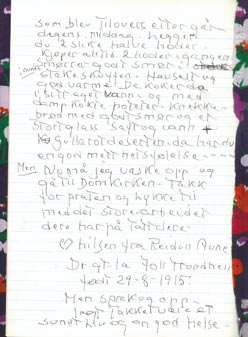 som blev tilovers etter går
dagens middag. legger
du 2 slike halve hoder.
Kjøper alltid 2 hoder igangen
smører godt smør i
stekeskuffen. Hauselt og
god varme. De koker da
sitt eget vann - og med
damp kokte poteter. Knekke-
brød med godt smør og et
stort glass saft og vann +
gullerot deserten. da har du
en god mett helse følelse - - -
Men Nu må jeg vaske opp og
gå til Domkirken. Takk
for praten og lykke til
med det store arbeidet
dere har på Tøttdere
♡ hilsen fra Reidun Aune
Dr gt. 1a 7011 Trondheim
født 29-8-1915.
Men sprek og opp-
lagt. Takket være et
sunt liv og en god helse.